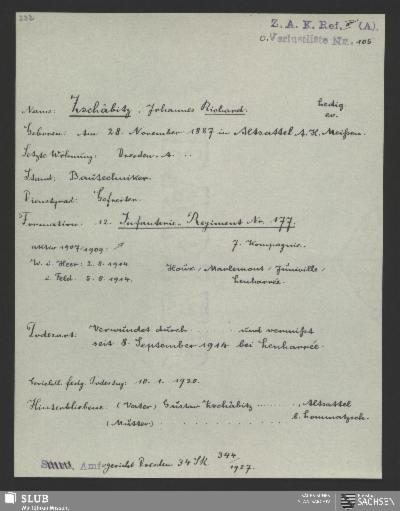 Z. A. K. Ref. (A).
Verlustliste Nr. 105
Name: Zschäbitz, Johannes Richard. ledig
ev.
Geboren: Am 28. November 1887 in Altsattel A. H. Meißen.
Letzte Wohnung: Dresden-A. ..
Stand: Bautechniker.
Dienstgrad: Gefreiter.
Formation: 12. Infanterie-Regiment Nr. 177.
aktiv 1907/1909: 7. Kompagnie.
W. i. Heer: 2.8.1914 Houx, Marlemont, Juniville,
i. Feld: 5.8.1914. Lenharrée.
Todesart: Verwundet durch ..... und vermißt
seit 8. September 1914 bei Lenharrée.
Gerichtl. festg. Todestag: 10.1.1920.
Hinterbliebene: (Vater) Gustav Zschäbitz ........., Altsattel
(Mutter) .................... b. Lommatzsch.
Amtsgericht Dresden 34 SR 344/1927.
SLUB
Wir führen Wissen.
SACHSEN